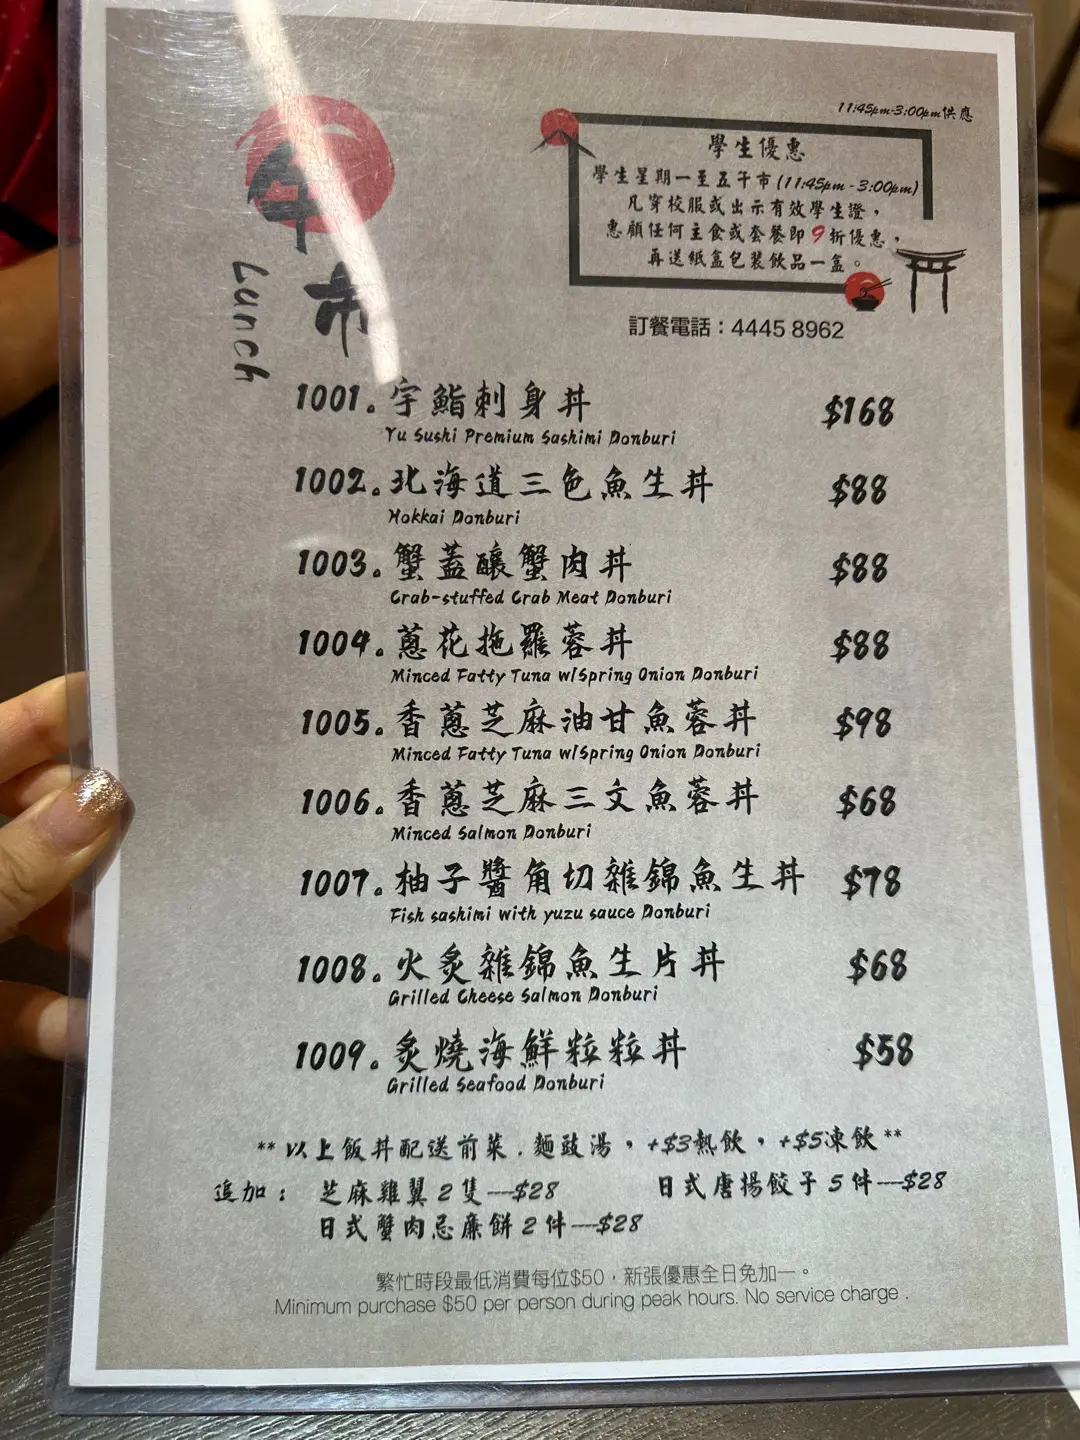 11:45pm-3:00pm供應
午市
Lunch
學生優惠
學生星期一至五午市(11:45pm-3:00pm)
凡穿校服或出示有效學生證，
惠顧任何主食或套餐即9折優惠，
再送紙盒包裝飲品一盒。
訂餐電話：4445 8962
1001。宇鮨刺身丼 $168
Yu Sushi Premium Sashimi Donburi
1002。北海道三色魚生丼 $88
Hokkai Donburi
1003。蟹蓋釀蟹肉丼 $88
Crab-stuffed Crab Meat Donburi
1004。蔥花拖羅蓉丼 $88
Minced Fatty Tuna w/Spring Onion Donburi
1005。香蔥芝麻油甘魚蓉丼 $98
Minced Fatty Tuna w/Spring Onion Donburi
1006。香蔥芝麻三文魚蓉丼 $68
Minced Salmon Donburi
1007。柚子醬角切雜錦魚生丼 $78
Fish sashimi with yuzu sauce Donburi
1008。火炙雜錦魚生片丼 $68
Grilled Cheese Salmon Donburi
1009。炙燒海鮮粒粒丼 $58
Grilled Seafood Donburi
**以上飯丼配送前菜.麵豉湯，+$3熱飲，+$5凍飲**
追加： 芝麻雞翼2隻—$28 日式唐揚餃子5件—$28
日式蟹肉忌廉餅2件—$28
繁忙時段最低消費每位$50，新張優惠全日免加一。
Minimum purchase $50 per person during peak hours. No service charge .